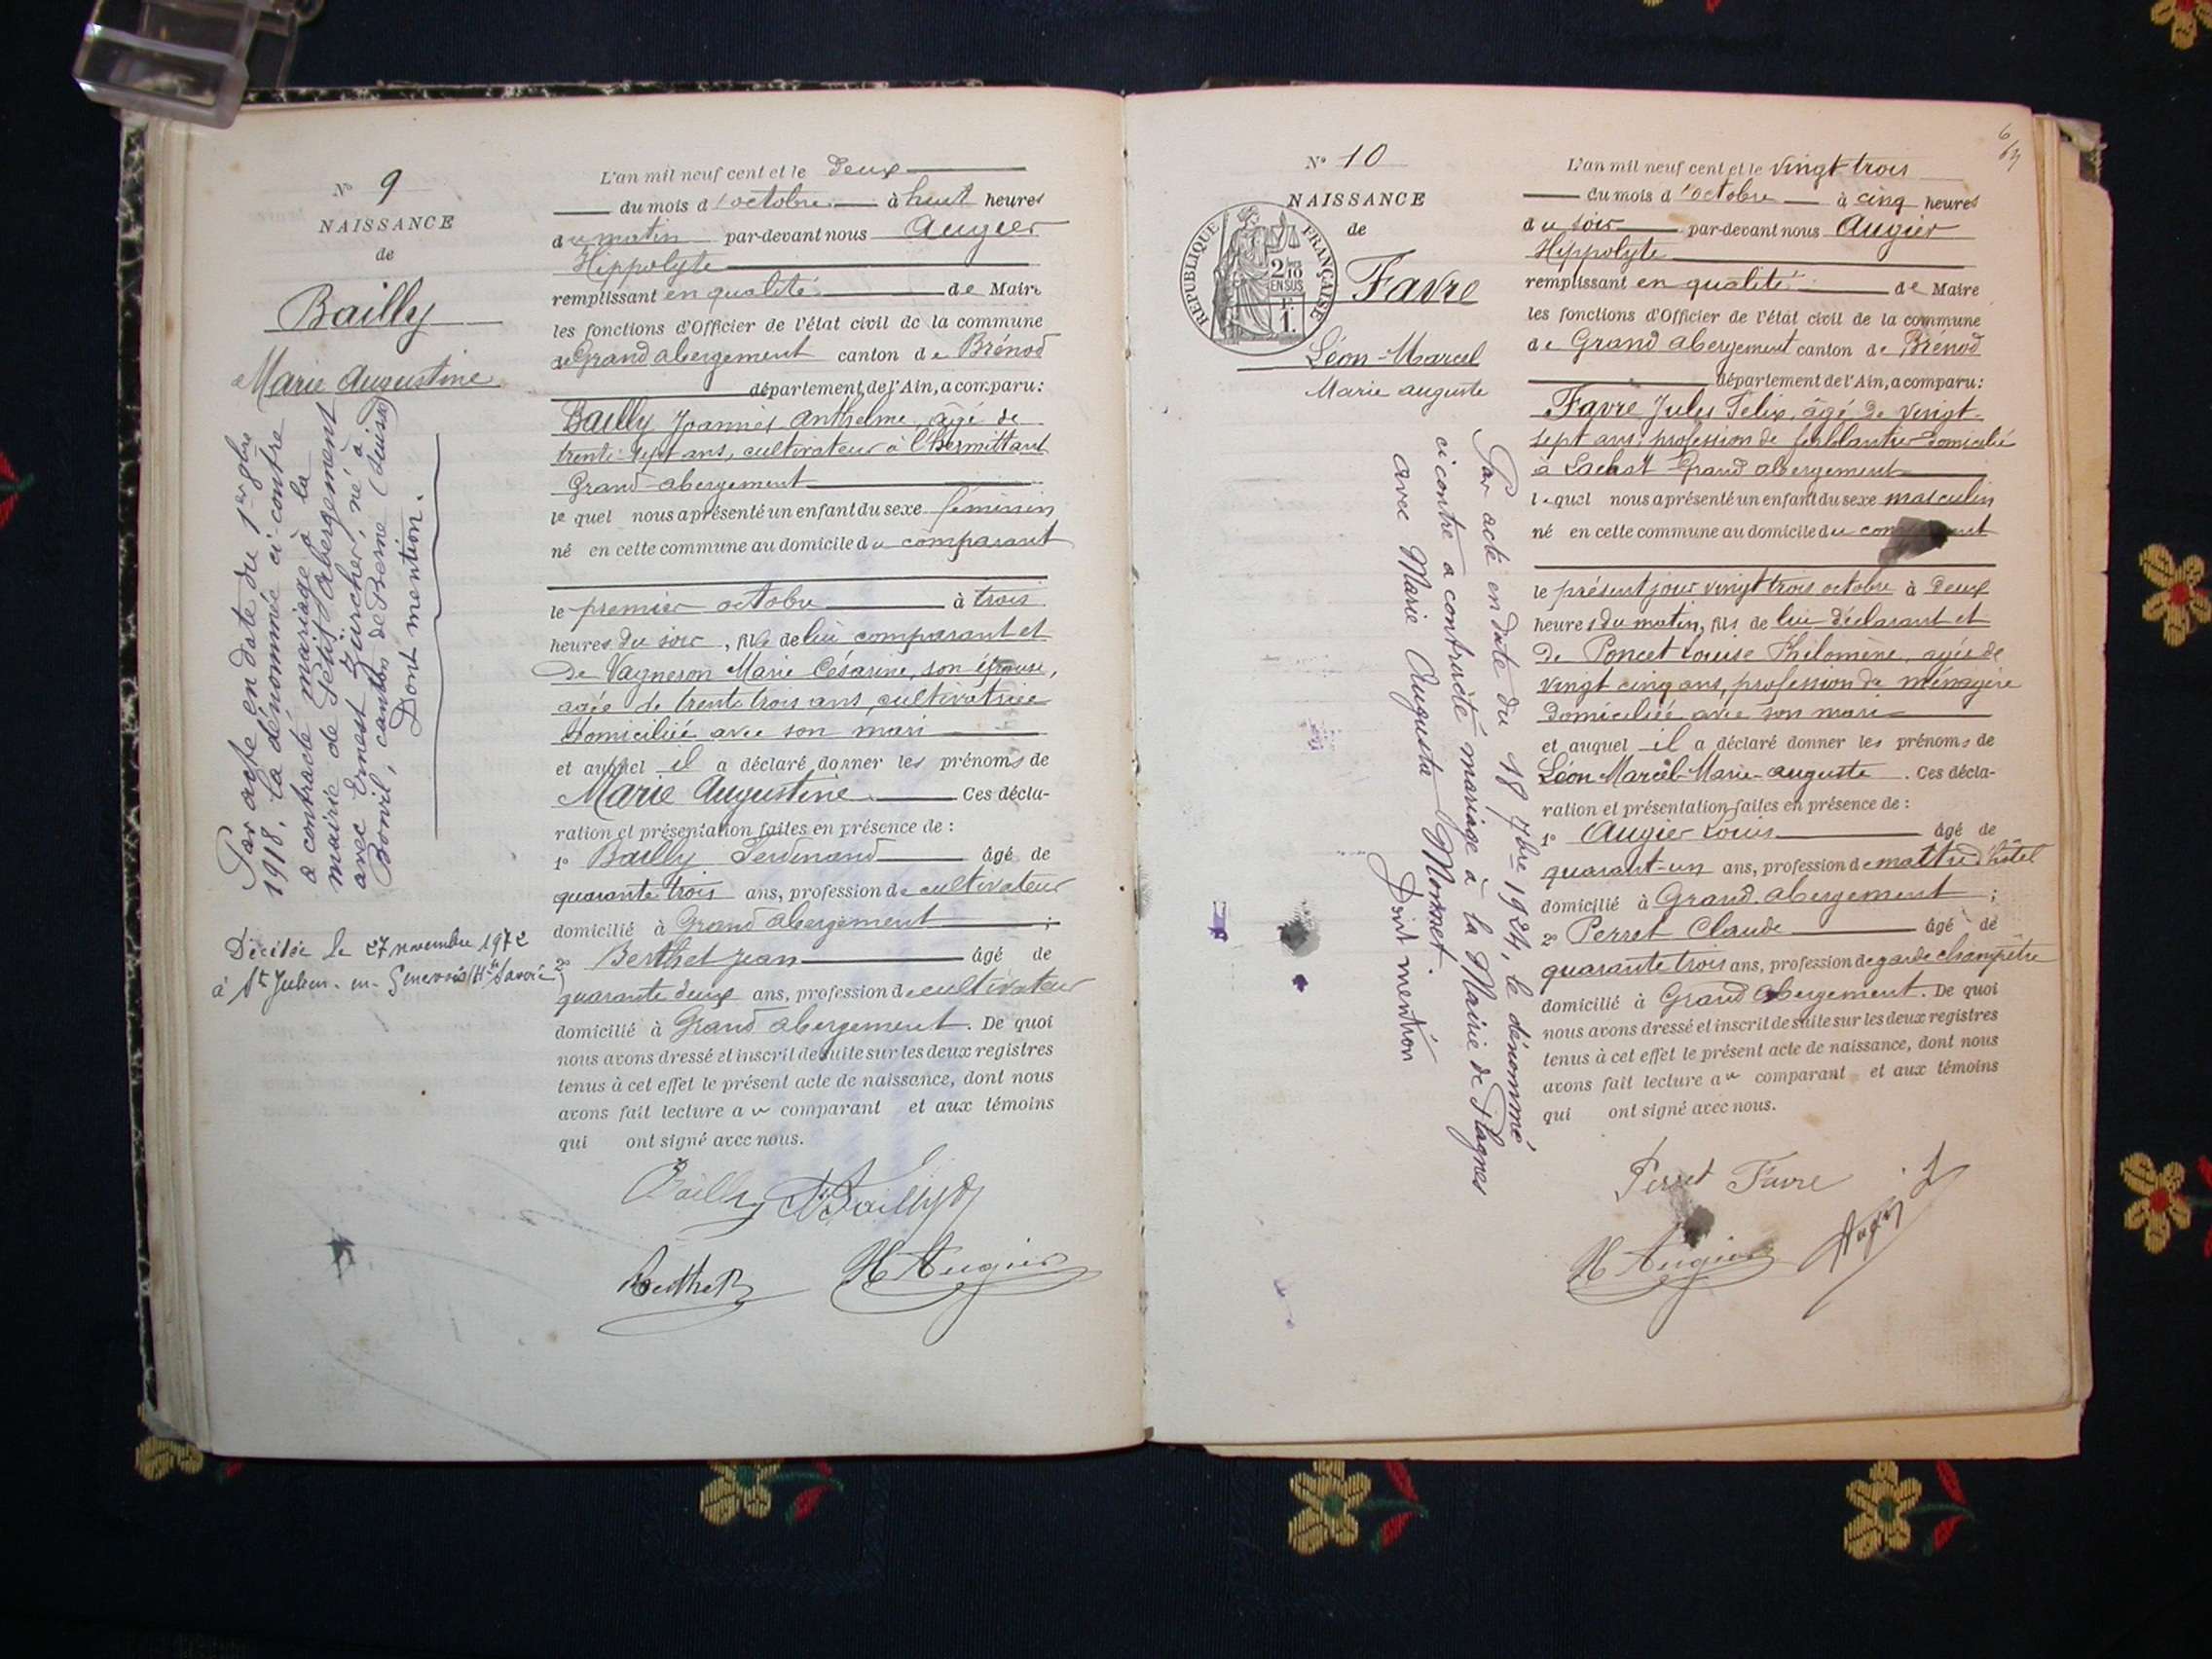 N° 9
NAISSANCE
de
Bailly
Marie Augustine
Par acte en date du 1er 9bre
1918, la dénommée ci-contre
a contracté mariage à la
mairie de Petit Abergement
avec Ernest Zürcher, né à
Bonvil, canton de Berne (Suisse)
Dont mention.
Décédée le 27 novembre 1972
à St Julien-en-Genevois (Hte Savoie)
L'an mil neuf cent et le deux
du mois d'octobre à huit heures
du matin par-devant nous Augier
Hippolyte
remplissant en qualité de Maire
les fonctions d'Officier de l'état civil de la commune
de Grand abergement canton de Brénod
département de l'Ain, a comparu:
Bailly Joannès Anthelme, âgé de
trente-sept ans, cultivateur à l'hermittant
Grand-abergement
le quel nous a présenté un enfant du sexe féminin
né en cette commune au domicile du comparant
le premier octobre à trois
heures du soir, fille de lui comparant et
de Vagneron Marie Césarine, son épouse,
agée de trente trois ans, cultivatrice
domiciliée avec son mari
et auquel il a déclaré donner les prénoms de
Marie Augustine Ces décla-
ration et présentation faites en présence de :
1° Bailly Ferdinand âgé de
quarante trois ans, profession de cultivateur
domicilié à Grand abergement ;
2° Berthet Jean âgé de
quarante deux ans, profession de cultivateur
domicilié à Grand abergement. De quoi
nous avons dressé et inscrit de suite sur les deux registres
tenus à cet effet le présent acte de naissance, dont nous
avons fait lecture au comparant et aux témoins
qui ont signé avec nous.
Bailly Bailly
Berthet H Augier
N° 10
NAISSANCE
de
RÉPUBLIQUE FRANÇAISE
2/10
EN SUS
1.
Favre
Léon-Marcel
Marie auguste
Par acte en date du 18 7bre 1924, le dénommé
ci contre a contracté mariage à la Mairie de Plagnes
avec Marie Augusta Monnet.
Dont mention
L'an mil neuf cent et le vingt trois
du mois d'octobre à cinq heures
du soir par-devant nous Augier
Hippolyte
remplissant en qualité de Maire
les fonctions d'Officier de l'état civil de la commune
de Grand abergement canton de Brénod
département de l'Ain, a comparu:
Favre Jules Félix, âgé de vingt-
sept ans, profession de ferblantier domicilié
à Lachat Grand abergement
lequel nous a présenté un enfant du sexe masculin
né en cette commune au domicile du comparant
le présent jour vingt trois octobre à deux
heures du matin, fils de lui déclarant et
de Poncet Louise Philomène, agée de
vingt cinq ans, profession de ménagère
domiciliée avec son mari
et auquel il a déclaré donner les prénoms de
Léon-Marcel-Marie-auguste. Ces décla-
ration et présentation faites en présence de :
1° Augier Louis âgé de
quarant-un ans, profession de maître d'hôtel
domicilié à Grand abergement ;
2° Perret Claude âgé de
quarante trois ans, profession de garde champêtre
domicilié à Grand abergement. De quoi
nous avons dressé et inscrit de suite sur les deux registres
tenus à cet effet le présent acte de naissance, dont nous
avons fait lecture au comparant et aux témoins
qui ont signé avec nous.
Perret Favre
H Augier Augier